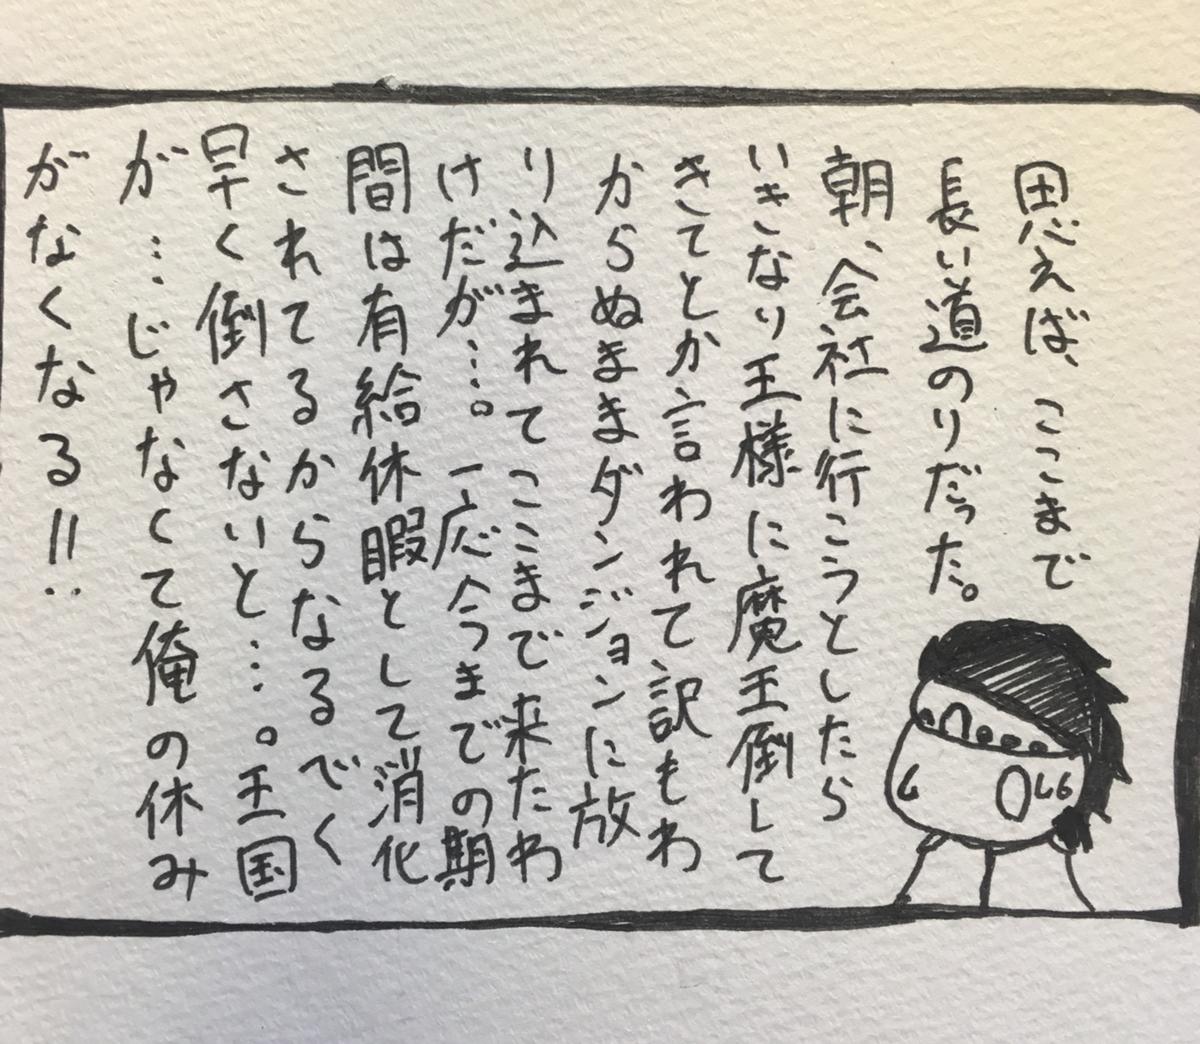 思えば、ここまで
長い道のりだった。
朝、会社に行こうとしたら
いきなり王様に魔王倒して
きてとか言われて訳もわ
からぬままダンジョンに放
り込まれてここまで来たわ
けだが…。一応今までの期
間は有給休暇として消化
されてるからなるでく
早く倒さないと…。王国
が…じゃなくて俺の休み
がなくなる!!